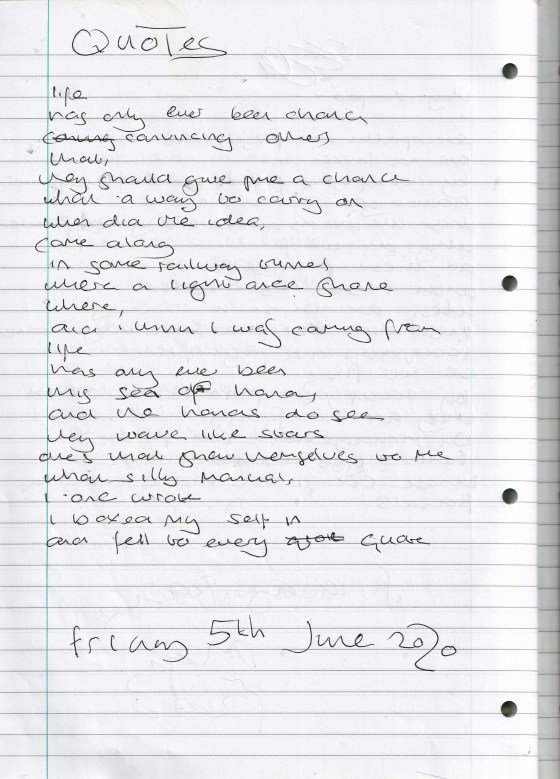 Quotes
life
has only ever been chance
convincing others
that,
they should give me a chance
what a way to carry on
when did the idea,
come along
in some railway tunnel
where a light once shone
where,
did i think i was coming from
life
has only ever been
this sea of hands,
and the hands do see
they wave like stars
ones that show themselves to me
what silly manual,
i once wrote
i boxed my self in
and fell to every quote
Friday 5th June 2020